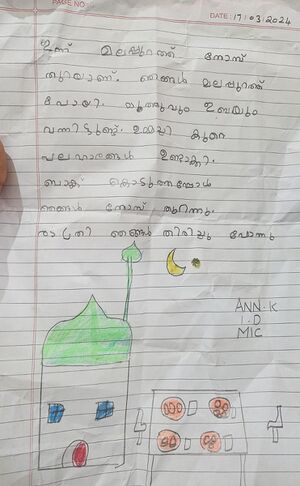 PAGE NO:
DATE: 17/03/2024
ഇന്ന് മലപ്പുറത്ത് നോമ്പ്
തുറയാണ്. ഞങ്ങൾ മലപ്പുറത്ത്
പോയി. ഇബയും
വന്നിട്ടുണ്ട്. ഉമ്മച്ചി കുറെ
പലഹാരങ്ങൾ ഉണ്ടാക്കി.
ബാങ്ക് കൊടുത്തപ്പോൾ
ഞങ്ങൾ നോമ്പ് തുറന്നു.
രാത്രി ഞങ്ങൾ തിരിച്ചു പോന്നു
ANN.K
1.D
MIC